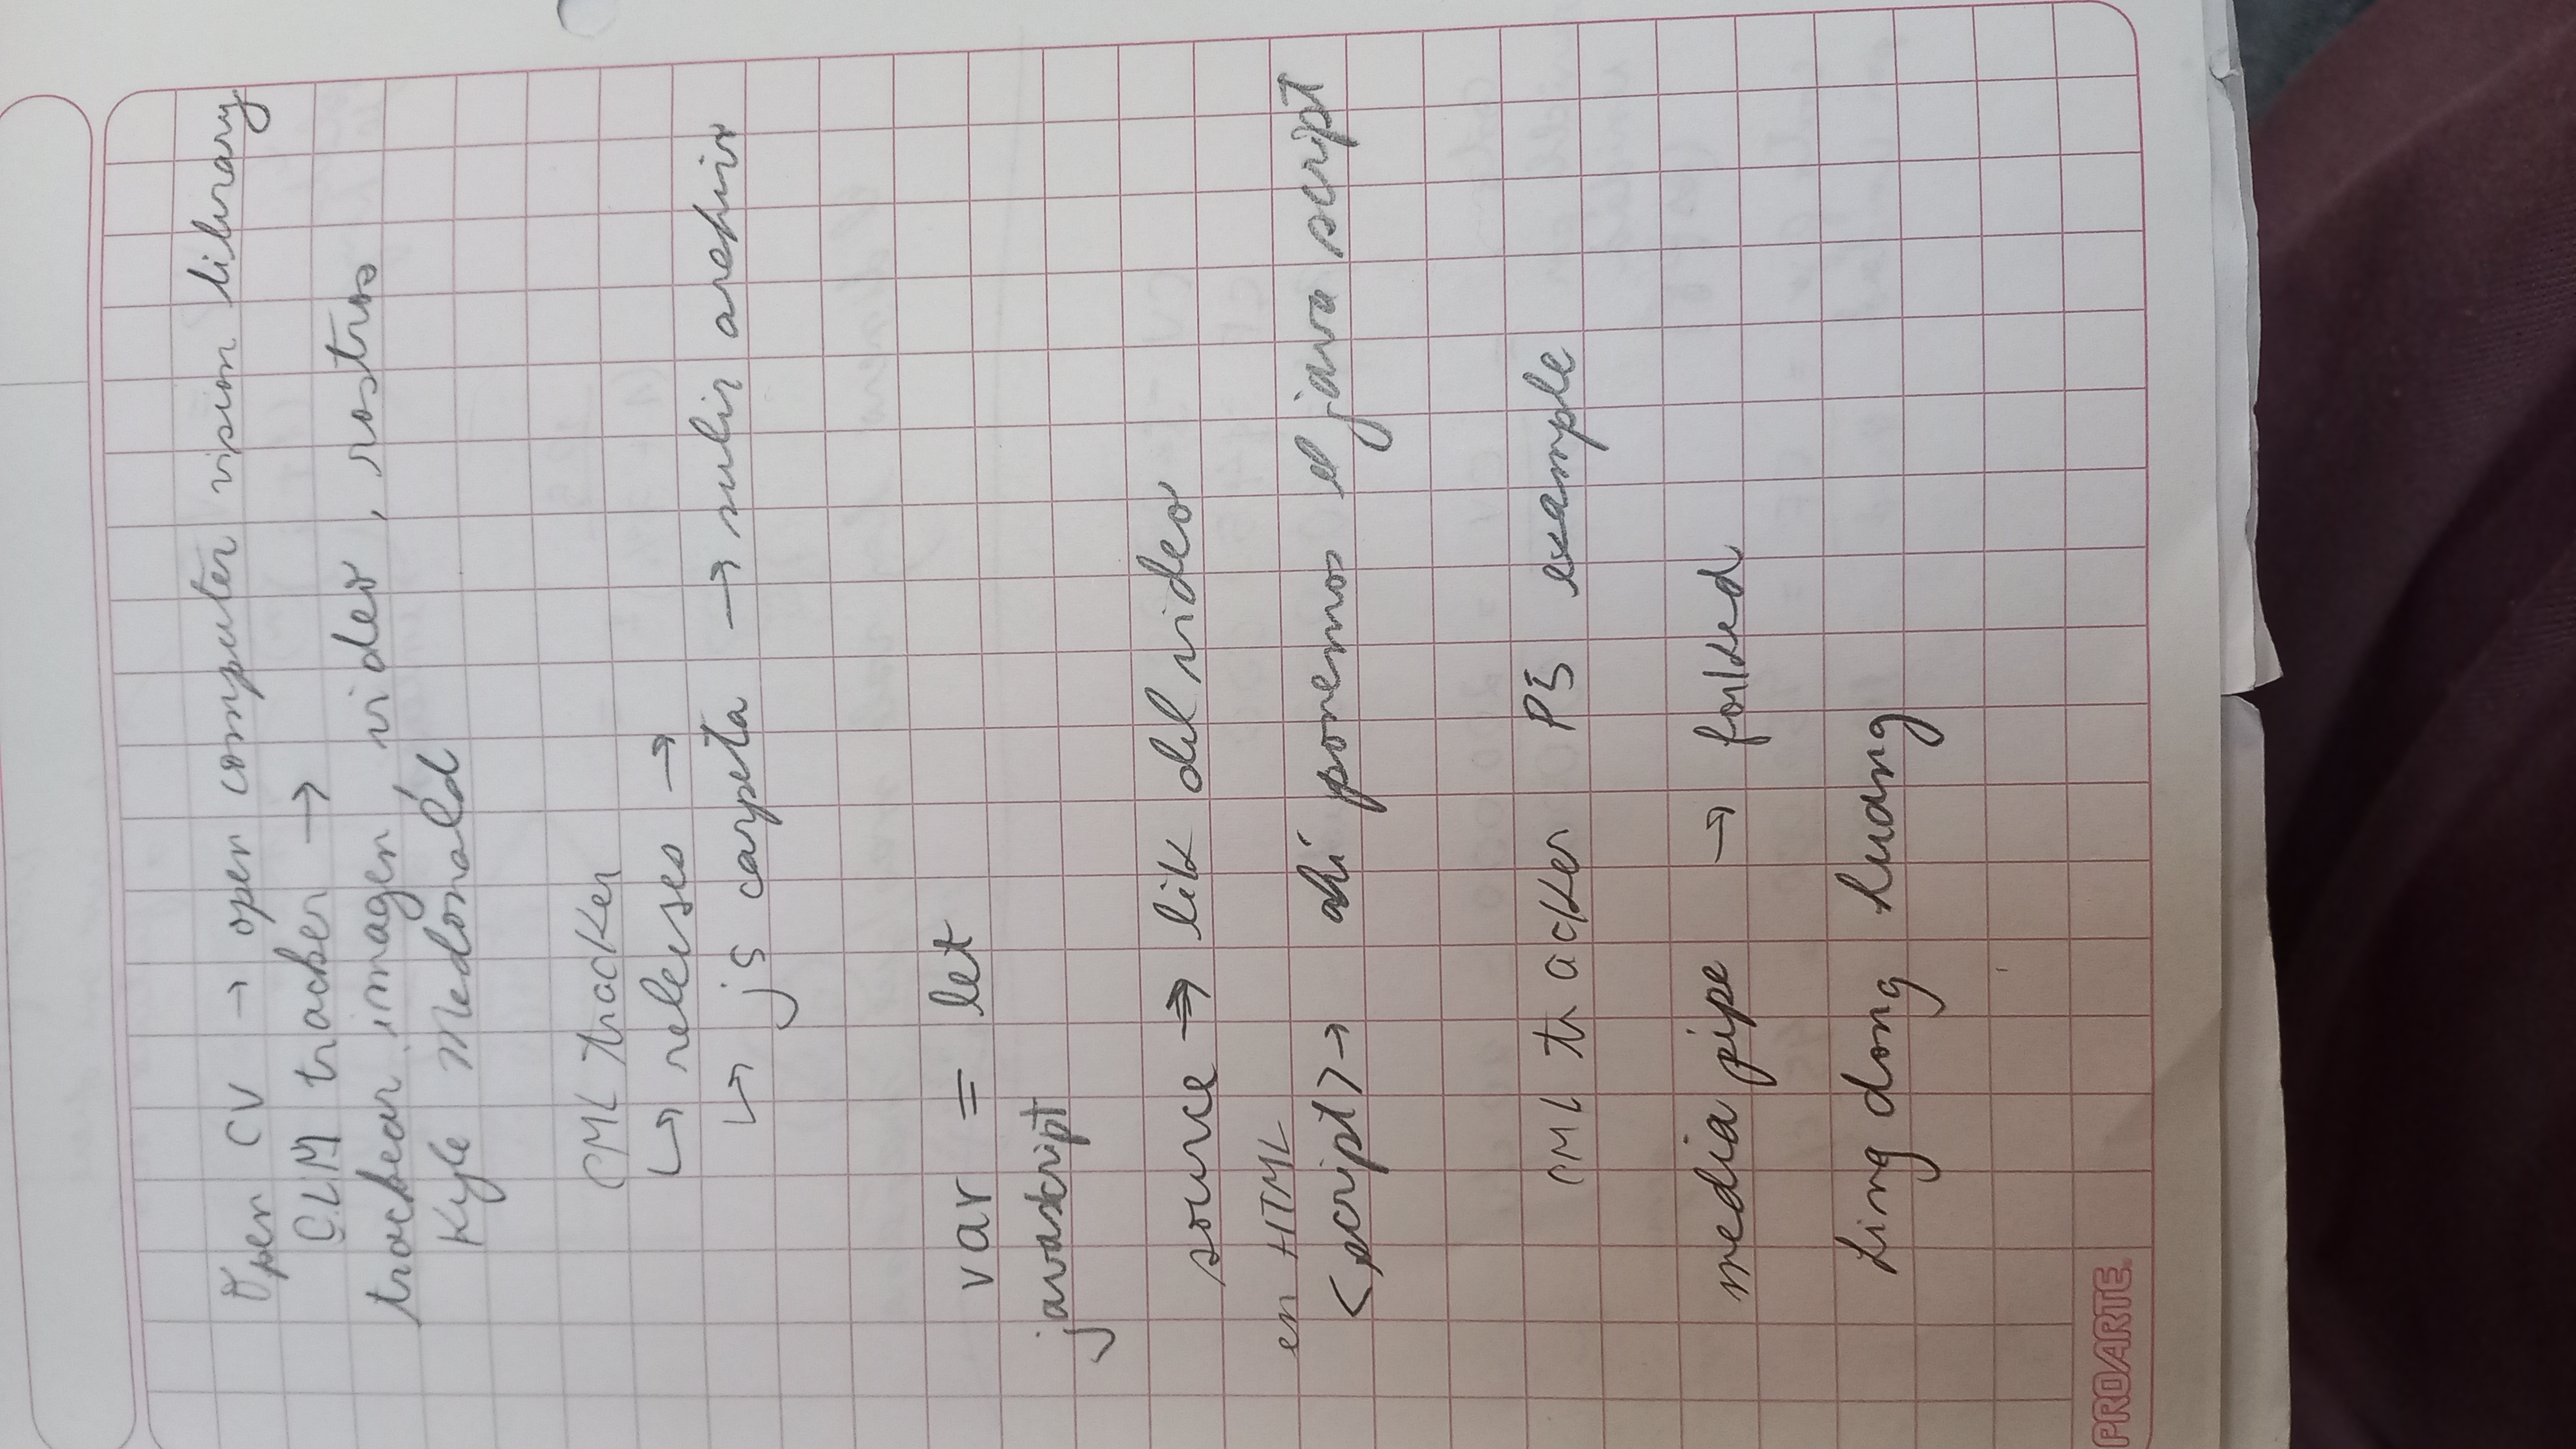 Open CV → open computer vision library
CLM tracker →
trackear imagen, video, rostros
Kyle Mcdonald
CML tracker
↳ releases →
↳ js carpeta → subir archivo
var = let
javascript
source → lik del video
en HTML
<script> → ahi ponemos el java script
CML tracker P5 example
media pipe → forked
Ling dong huang
PROARTE